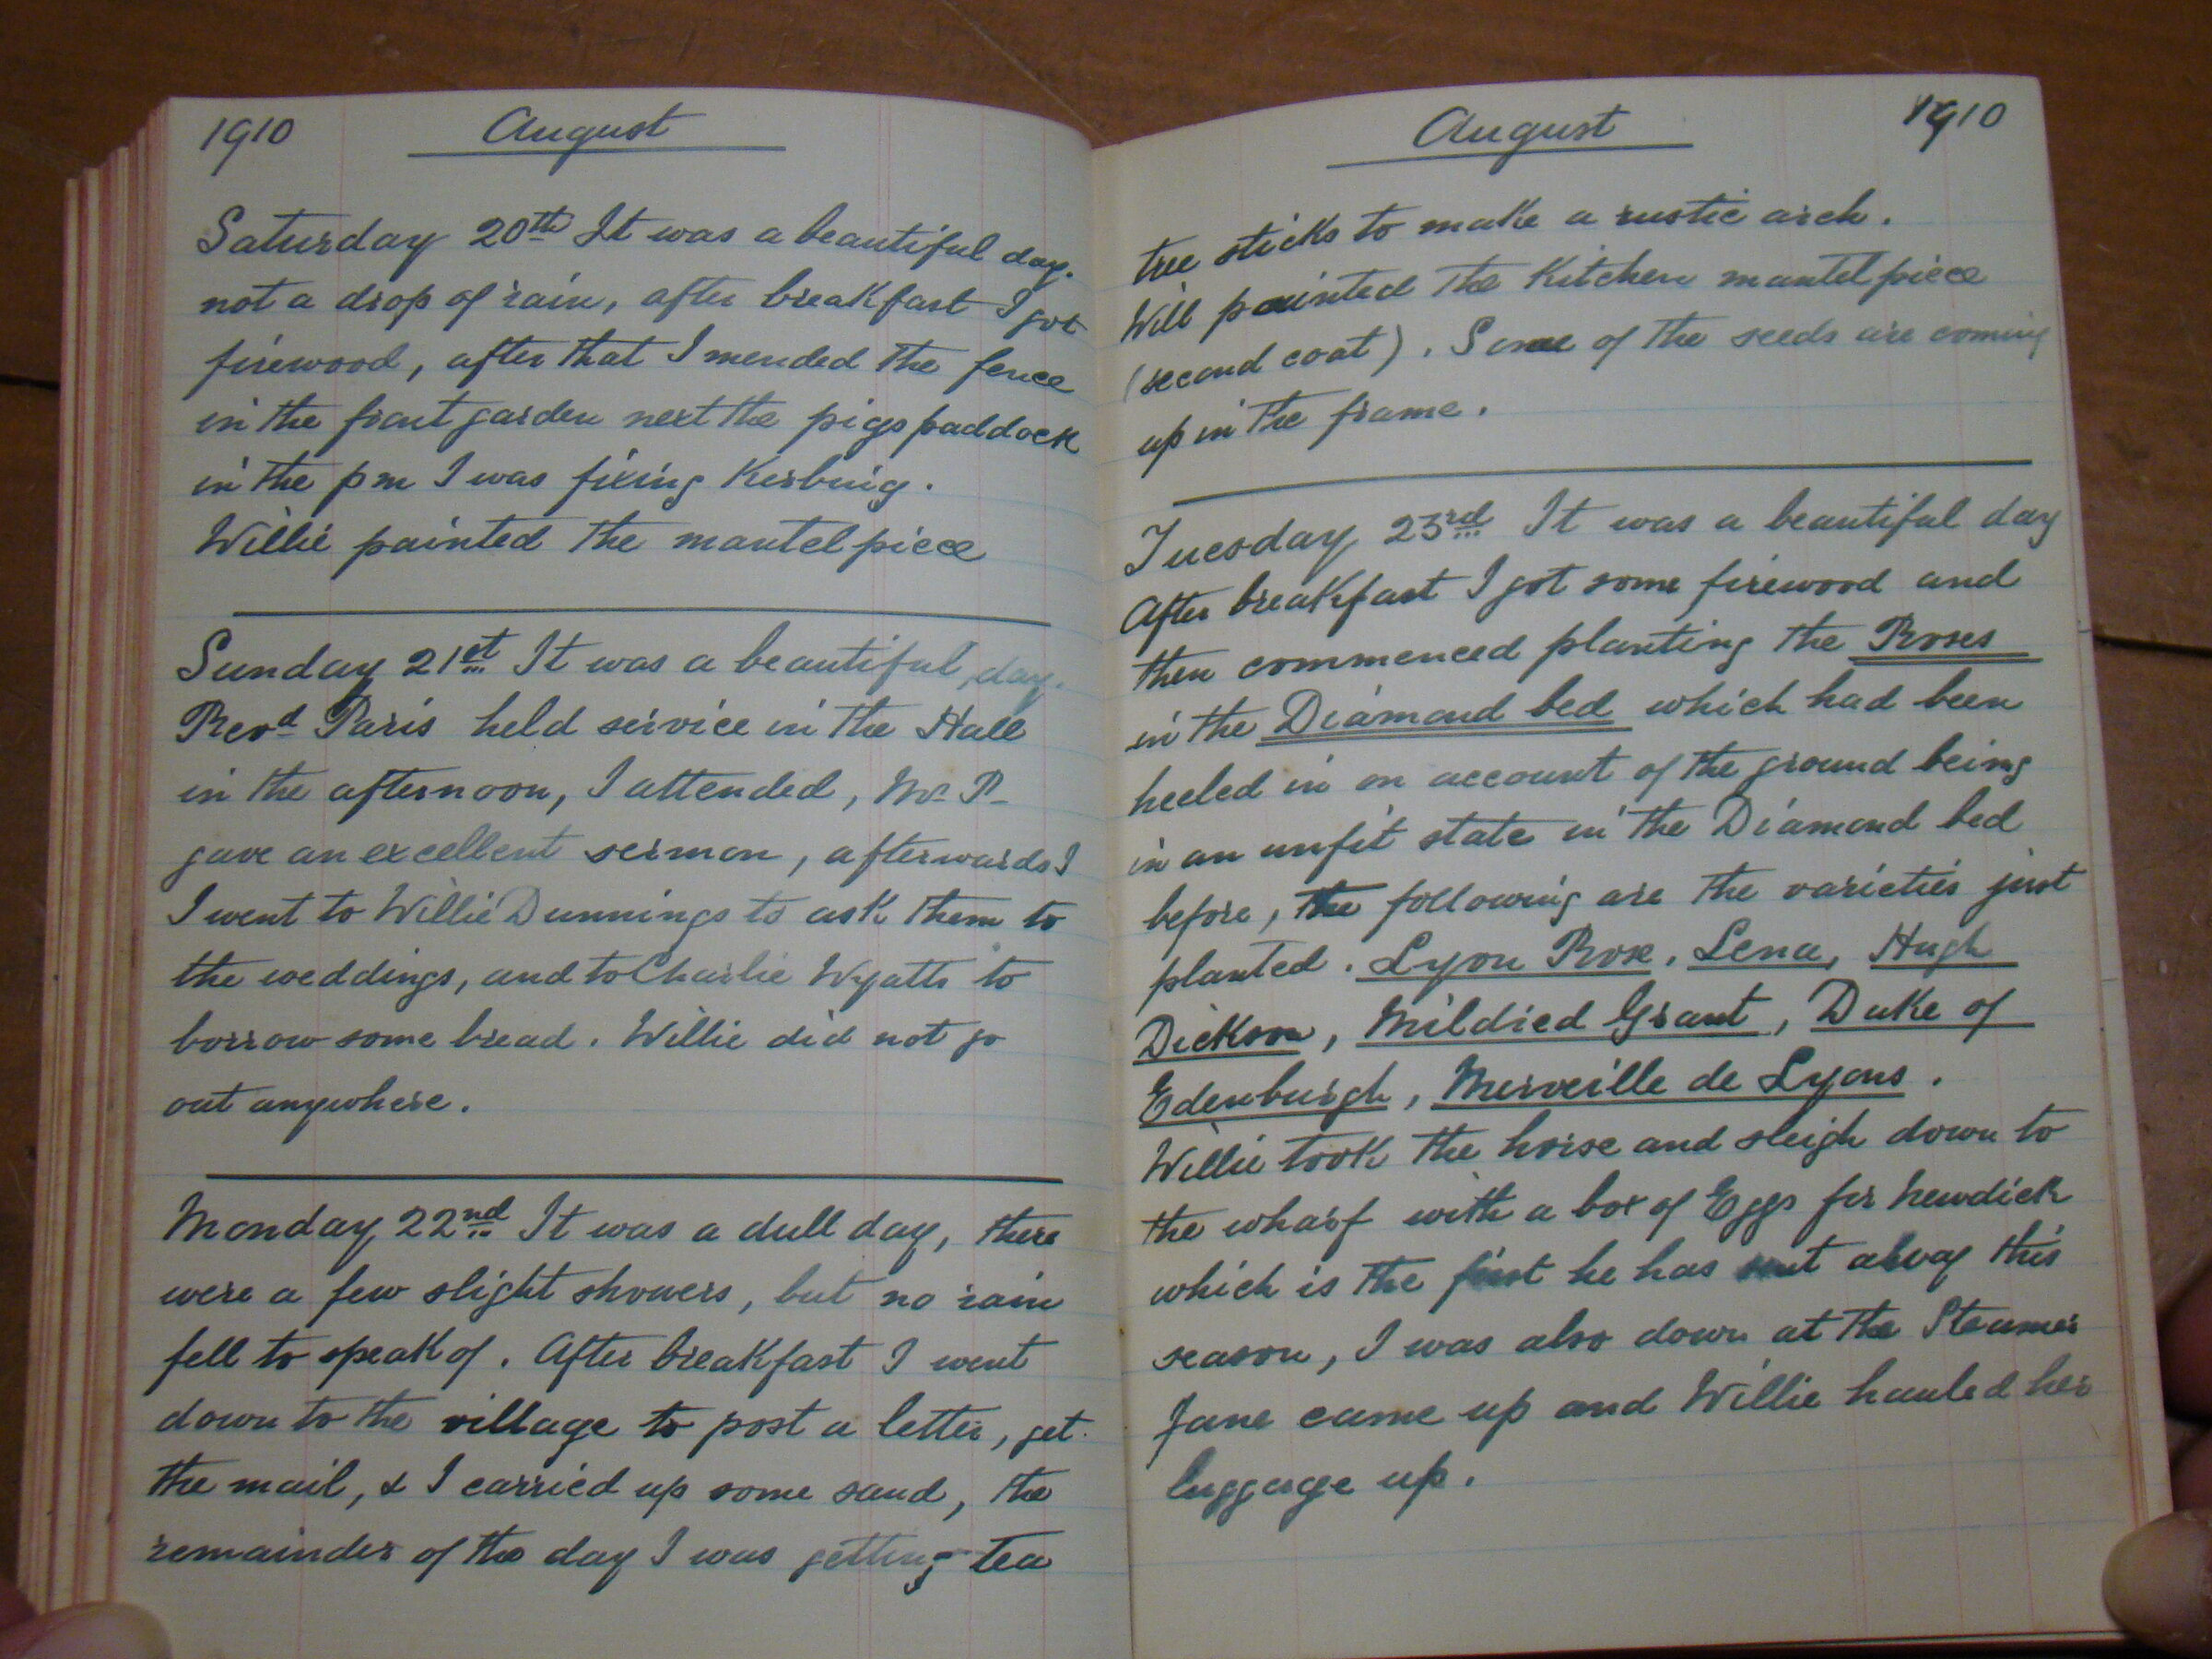 1910 August
Saturday 20th It was a beautiful day.
not a drop of rain, after breakfast I got
firewood, after that I mended the fence
in the front garden next the pigs paddock
in the pm I was fixing Kerbing.
Willie painted the mantel piece
Sunday 21st It was a beautiful day.
Revd Paris held service in the Hall
in the afternoon, I attended, Mr P-
gave an excellent sermon, afterwards I
I went to Willie Dunnings to ask them to
the weddings, and to Charlie Wyatts to
borrow some bread. Willie did not go
out anywhere.
Monday 22nd It was a dull day, there
were a few slight showers, but no rain
fell to speak of. After breakfast I went
down to the village to post a letter, get
the mail, & I carried up some sand, the
remainder of the day I was getting tea
August 1910
tree sticks to make a rustic arch.
Will painted the Kitchen mantel piece
(second coat). Some of the seeds are coming
up in the frame.
Tuesday 23rd It was a beautiful day
After breakfast I got some firewood and
then commenced planting the Roses
in the Diamond bed which had been
heeled in on account of the ground being
in an unfit state in the Diamond bed
before, the following are the varieties just
planted. Lyon Rose, Lena, Hugh
Dickson, Mildred Grant, Duke of
Edenburgh, Merveille de Lyons.
Willie took the horse and sleigh down to
the wharf with a box of Eggs for Newdick
which is the first he has sent away this
season, I was also down at the Steamer
Jane came up and Willie hauled her
luggage up.